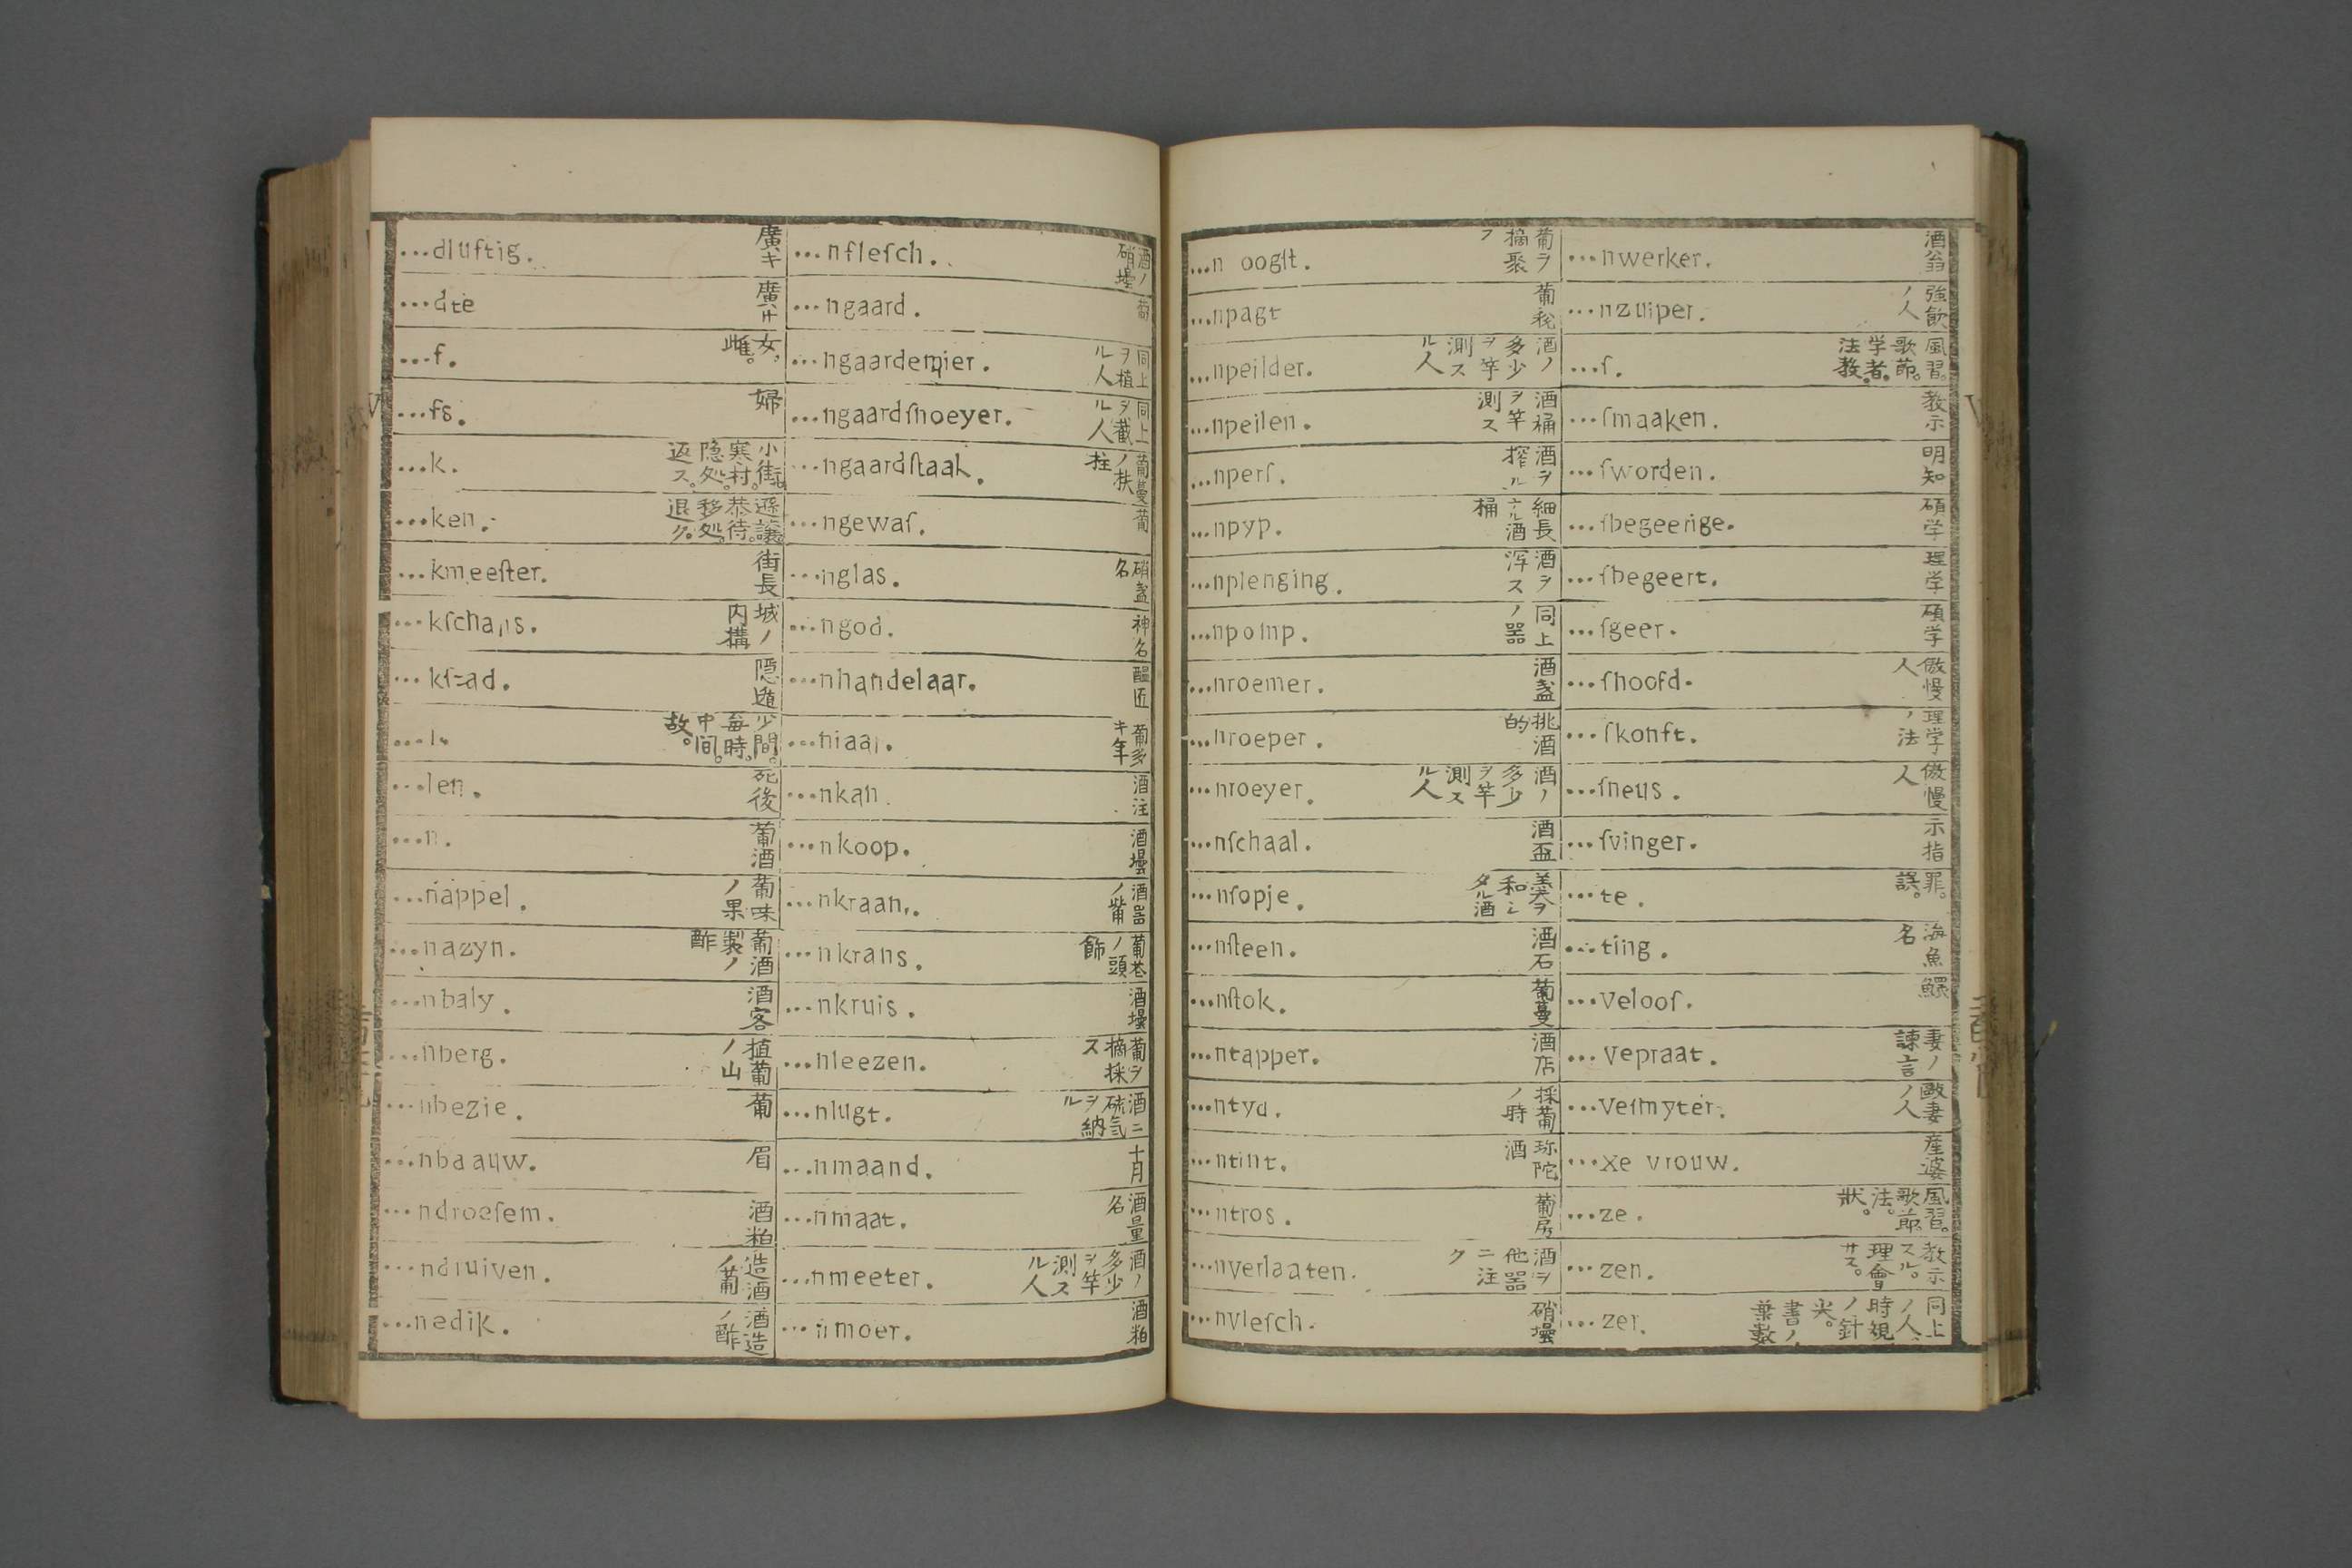 ...dluftig. 廣キ
...dte 廣サ
...f. 女。雌。
...fs. 婦
...k. 小街。寒村。隐処。返ス。
...ken. 遜譲。恭待。移処。退ク。
...kmeeſter. 街長
...kſchans. 城ノ内構
...kſ=ad. 隠遁
...l. 少間。毎時。中间。故。
...len. 死後
...n. 葡酒
...nappel. 葡味ノ果
...nazyn. 葡酒製ノ酢
...nbaly. 酒客
...nberg. 植葡ノ山
...nbezie. 葡
...nbaauw. 眉
...ndroeſem. 酒粕
...ndruiven. 造酒ノ葡
...nedik. 酒造ノ酢
...nfleſch. 酒ノ硝壜
...ngaard. 葡
...ngaardenier. 同上ヲ植ル人
...ngaardſnoeyer. 同上ヲ截ル人
...ngaardſtaak. 葡蔓ノ扶柱
...ngewaſ. 葡
...nglas. 硝盞名
...ngod. 神名
...nhandelaar. 醖匠
...niaar. 葡多キ年
...nkan. 酒注
...nkoop. 酒壜
...nkraan. 酒器ノ觜
...nkrans. 葡巻ノ頭飾
...nkruis. 酒壜
...nleezen. 葡ヲ摘採ス
...nlugt. 酒ニ硫気ヲ納ル
...nmaand. 十月
...nmaat. 酒量名
...nmeeter. 酒ノ多少ヲ竿測スル人
...nmoer. 酒粕
...n oogſt. 葡ヲ摘聚フ
...npagt 葡税
...npeilder. 酒ノ多少ヲ竿測スル人
...npeilen. 酒桶ヲ竿測ス
...nperſ. 酒ヲ搾ル
...npyp. 細長ナル酒桶
...nplenging. 酒ヲ浑ス
...npomp. 同上ノ器
...nroemer. 酒盞
...nroeper. 挑酒的
...nroeyer. 酒ノ多少ヲ竿測スル人
...nſchaal. 酒盃
...nſopje. 羹ヲ和シタル酒
...nſteen. 酒石
...nſtok. 葡蔓
...ntapper. 酒店
...ntyd. 採葡ノ時
...ntint. 珎陀酒
...ntros. 葡房
...nverlaaten. 酒ヲ他器ニ注ク
...nvleſch. 硝壜
...nwerker. 酒翁
...nzuiper. 強飲ノ人
...ſ. 風習。歌節。学者。法教。
...ſmaaken. 教示
...ſworden. 明知
...ſbegeerige. 碩学
...ſbegeert. 理学
...ſgeer. 碩学
...ſhoofd. 傲慢人
...ſkonſt. 理学ノ法
...ſneus. 傲慢人
...ſvinger. 示指
...te. 罪。誤。
...ting. 海魚名
...veloof. 鰥
...vepraat. 妻ノ諫言
...veſmyter. 毆妻ノ人
...xe vrouw. 産婆
...ze. 風習。歌節。法。狀。
...zen. 教示スル。理會サス。
...zer. 同上ノ人。時規ノ針尖。書ノ葉數